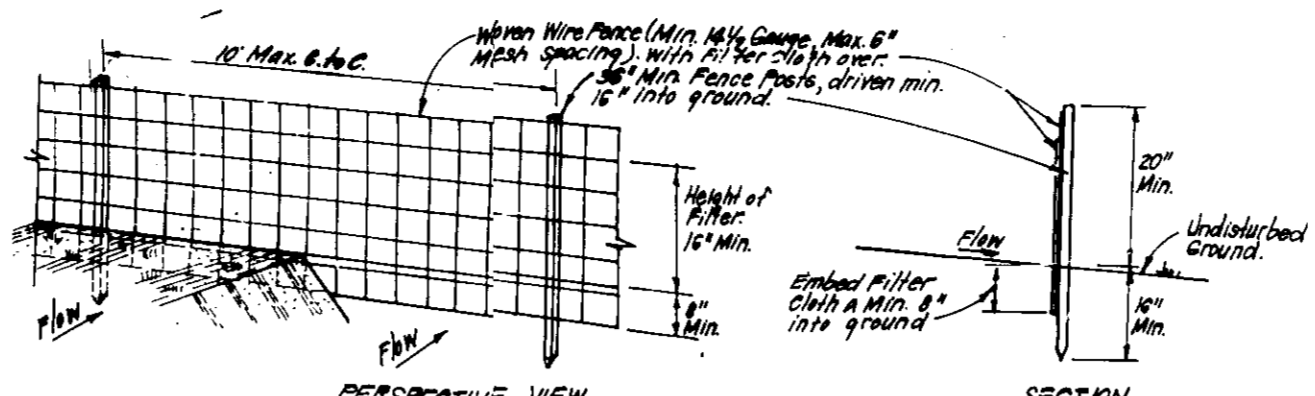 Woven Wire Fence (Min. 14½ Gauge, Max. 6"
Mesh spacing) with Filter Cloth over.
10' Max. C. to C.
36" Min. Fence Posts, driven min.
16" into ground.
Height of
Filter.
16" Min.
8"
Min.
Flow
Flow
PERSPECTIVE VIEW
20"
Min.
Flow
Undisturbed
Ground.
Embed Filter
Cloth A Min. 8"
into ground
16"
Min.
SECTION